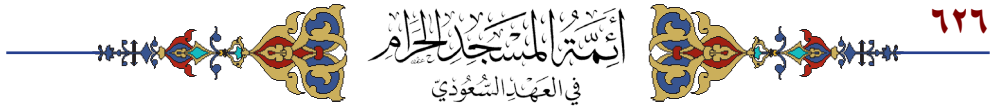 ٦٢٦
أَئِمَّةُ المَسْجِدِ الحَرَامِ
فِي العَهْدِ السُّعُودِيِّ